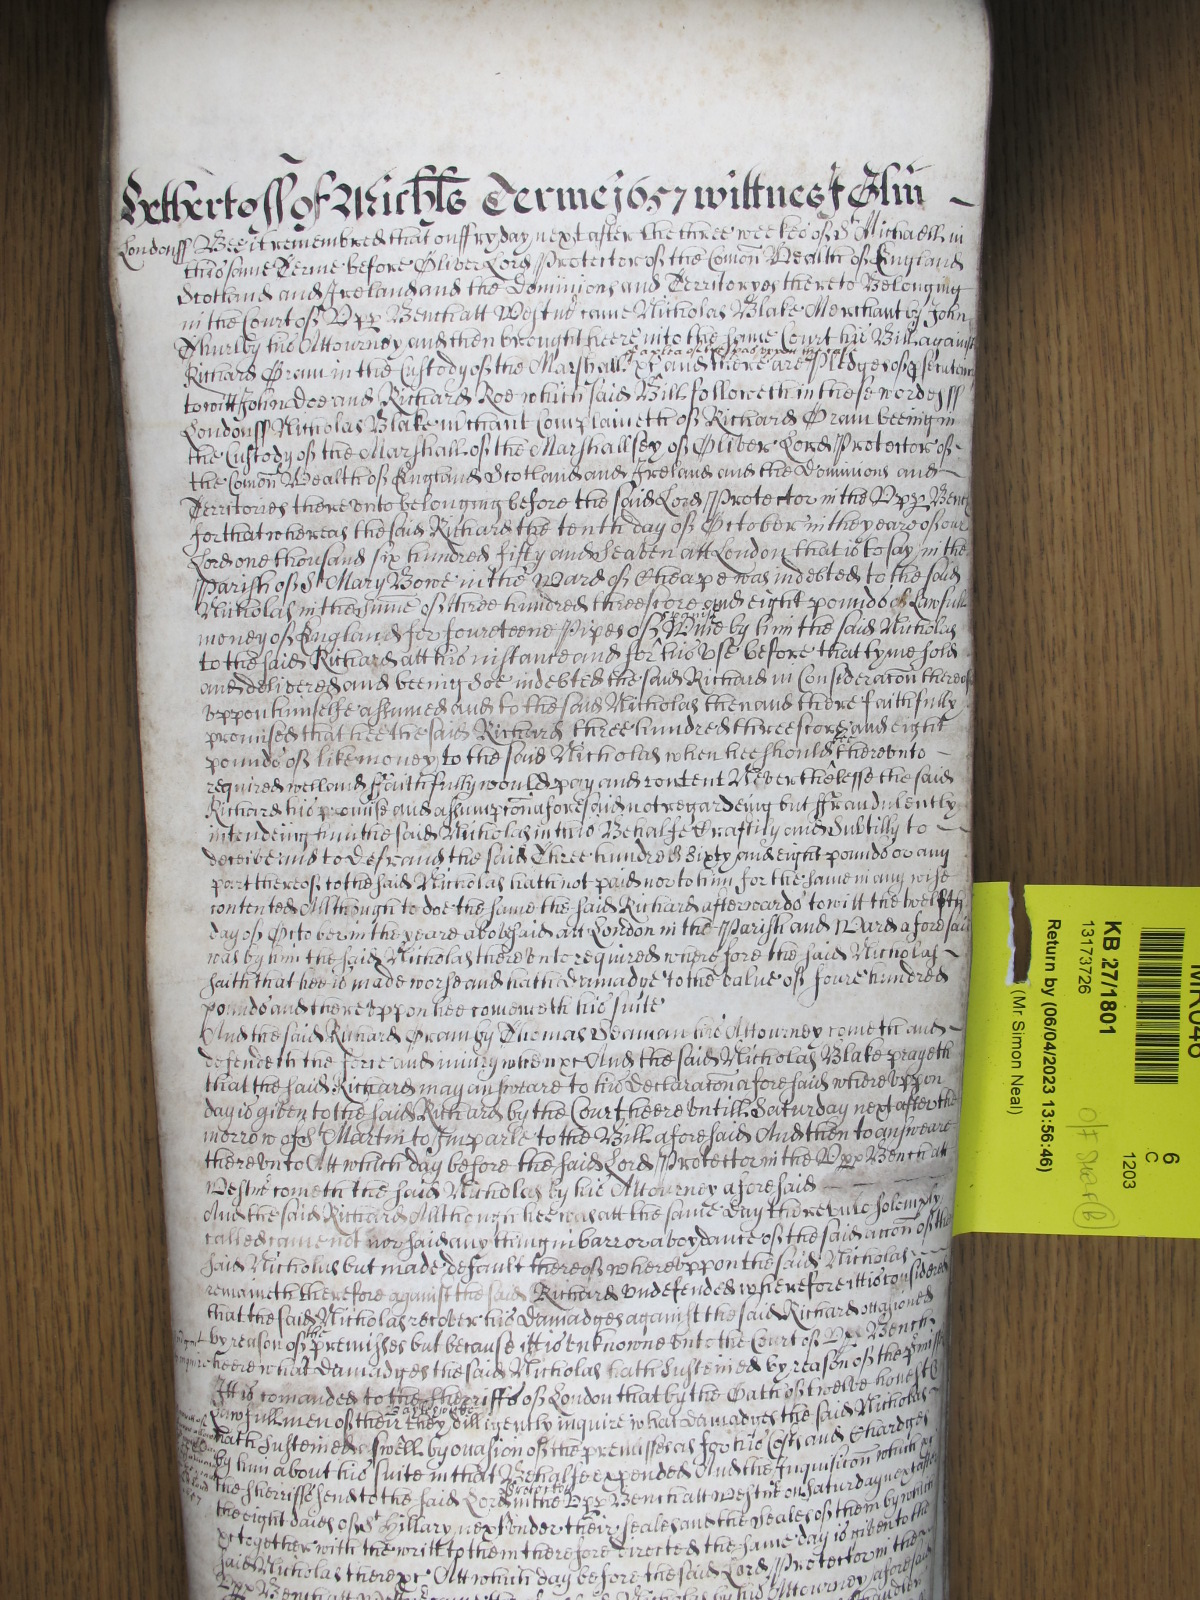 Yet hertoff of Michs Terme 1657 wittnes J Glin
Londonss Bee it remembred that on ffryday next after the three weekes of St Michaell in
this same Terme before Oliver Lord Protector of the Comon Wealth of England
Scotland and Ireland and the Dominions and Territoryes thereto Belonging
in the Court of Upp Bench att Westmr came Nicholas Blake Merchant by John
Thurlby his Attourney and then brought heere into the same Court his Bill against
of a plea of trespas upon the case
Richard Oram in the Custody of the Marshall &c and there are Pledges of psecution
to witt John Doe and Richard Roe which said Bill followeth in these wordes ss
Londonss Nicholas Blake mchant Complaineth of Richard Oram beeing in
the Custody of the Marshall of the Marshallsey of Oliver Lord Protector of
the Comon Wealth of England Scotland and Ireland and the Dominions and
Territories thereunto belonging before the said Lord Protector in the Upp Bench
for that whereas the said Richard the tenth day of October in the yeare of our
Lord one thousand six hundred fifty and seaven att London that is to say in the
Parish of St Mary Bowe in the Ward of Cheape was indebted to the said
Nicholas in the sume of three hundred threescore and eight pounds of Lawfull
Spanish
money of England for foureteene Pipes of Wine by him the said Nicholas
to the said Richard att his instance and for his use before that tyme sold
and delivered and beeing soe indebted the said Richard in Consideracon thereof
uppon himselfe assumed and to the said Nicholas then and there faithfully
promised that hee the said Richard three hundred threescore and eight
bee
pounds of like money to the said Nicholas when hee should thereunto
required well and ffaithfully would pay and content Neverthelesse the said
Richard his promise and assumpcon aforesaid not regardeing but ffraudulently
intendeing him the said Nicholas in this Behalfe Craftily and Subtilly to
deceive and to Defraud the said Three hundred Sixty and eight pounds or any
part thereof to the said Nicholas hath not paid nor to him for the same in any wise
contented Although to doe the same the said Richard afterwards to witt the twelfth
day of October in the yeare abovesaid att London in the Parish and Ward aforesaid
was by him the said Nicholas thereunto required wherefore the said Nicholas
saith that hee is made worse and hath damadge to the value of foure hundred
pounds and thereuppon hee cometh his suite
And the said Richard Oram by Thomas Seaman his Attourney cometh and
defendeth the force and iniury when &c And the said Nicholas Blake prayeth
that the said Richard may answeare to his Declaracon aforesaid whereuppon
day is given to the said Richard by the Court heere untill Saturday next after the
morrow of St Martin to Imparle to the Bill aforesaid And then to answeare
thereunto Att which day before the said Lord Protector in the Upp Bench att
Westmr cometh the said Nicholas by his Attourney aforesaid
And the said Richard Although hee was att the same day thereunto solempnly
called came not nor said any thing in barr or avoydance of the said accon of the
said Nicholas but made default thereof whereuppon the said Nicholas
remaineth therefore against the said Richard undefended wherefore itt is considered
that the said Nicholas recover his damadges against the said Richard occasioned
the
by reason of premisses but because itt is unknowne unto the Court of Upp Bench
heere what damadges the said Nicholas hath Susteined by reason of the pmisses
Itt is comanded to the Sherriffs of London that by the Oath of twelve honest &
Baylewicke
Lawfull men of their they dilligently inquire what damadges the said Nicholas
hath Susteined aswell by occasion of the premisses as for his Costs and Chardges
by him about his suite in that Behalfe expended And the Inquisicon which &c
Protector
the Sherriffs send to the said Lord in the Upp Bench att Westmr on Saturday next after
the eight daies of St Hillary next under their seales and the Seales of them by whom
&c together with the writt to them therefore directed the same day is given to the
said Nicholas there &c Att which day before the said Lord Protector in the
Upp Bench att Westmr
KB 27/1801
13173726
Return by (06/04/2023 13:56:46)
(Mr Simon Neal)
6
C
1203